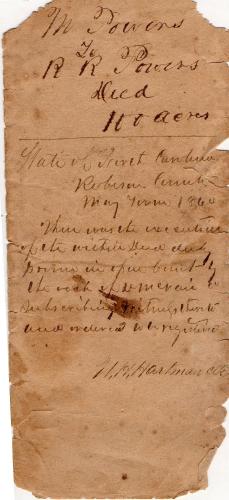 M Powers
To
R R Powers
Deed
110 acres
State of North Carolina
Robeson County
May Term 1860
Then was the execution
of the within Deed duly
proven in open court by
the oath of
subscribing witness thereto
and ordered to be registered